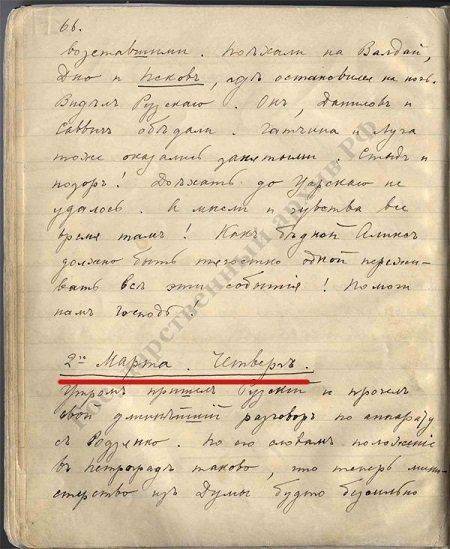 66.
возставшими. Поѣхали на Валдай,
Дно и Псковъ, гдѣ остановился на ночь.
Видѣлъ Рузскаго. Онъ, Даниловъ и
Саввичъ обѣдали. Гатчина и Луга
тоже оказались занятыми. Стыдъ и
позоръ! Доѣхать до Царскаго не
удалось. А мысли и чувства все
время тамъ! Какъ бѣдной Аликсъ
должно быть тягостно одной пережи-
вать всѣ эти событія! Помоги
намъ Господь!
2го Марта. Четвергъ.
Утромъ пришелъ Рузскій и прочелъ
свой длиннѣйшій разговоръ по аппарату
съ Родзянко. По его словамъ положеніе
въ Петроградѣ таково, что теперь мини-
стерство изъ Думы будто безсильно
Государственный архив РФ